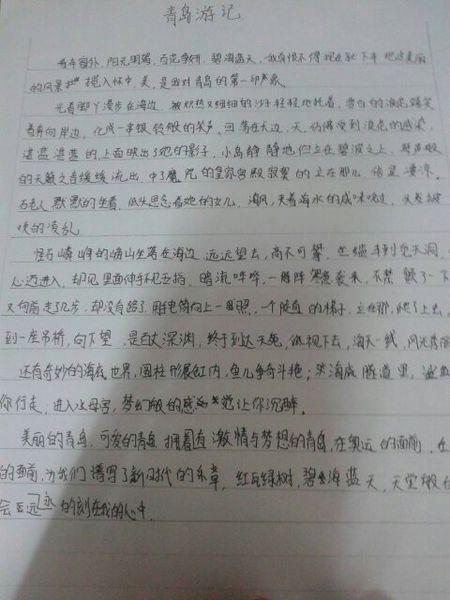 青岛游记
看车窗外,阳光明媚,百花争妍,碧海蓝天,我真恨不得现在就下车把这美丽
的风景 揽入怀中,美,是我对青岛的第一印象。
光着脚丫漫步在海边,被炽热又细细的沙子轻轻地托着,雪白的浪花踊笑
着奔向岸边,化成一串银铃般的笑声,回荡在天边,天,仿佛受到浪花的感染,
湛蓝湛蓝的上面映出了她的影子,小岛静静地伫立在碧波之上,琴声般
的天籁之音缓缓流出,中了魔咒的皇宫宫殿寂寞的立在那儿,倍是凄凉。
石老人默默的坐着,低头思念着她的女儿,海风,夹着海水的咸味吹过,头发被
吹的凌乱
怪石嶙峋的崂山坐落在海边,远远望去,高不可攀,坐缆车到觅天洞,
心迈进入,却见里面伸手不见五指,暗流哗哗,一阵阵寒意袭来,不禁颤了一下
又向前走了几步,却没有路了,用手电筒向上一照,一个陡直的梯子,立在那,爬了上去,
到一座吊桥,向下望,是百丈深渊,终于到达天苑,俯视下去,海天一线,风光秀丽
还有奇妙的海底世界,圆柱形展缸内,鱼儿争奇斗艳;坐海底隧道里,鲨鱼
你行走,进入水母宫,梦幻般的感觉让你沉醉。
美丽的青岛,可爱的青岛,拥有激情与梦想的青岛,在奥运的面前,在
的面前,为我们谱写了新时代的乐章,红瓦绿树,碧海蓝天,天堂般的
会永远的刻在我的心中。